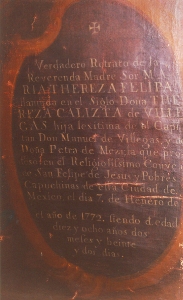 Verdadero Retrato de la
Reverenda Madre Sor M
RIA THEREZA FELIPA
llamada en el Siglo Doña THE
REZA CALIXTA de VILLE
GAS hija lexitima de el Capi
tan Don Manuel de Villegas, y de
Doña Petra de Meza, la que pro
feso en el Religiosissimo Conve
de San Felipe de Jesus y Pobres
Capuchinas de esta Ciudad de
Mexico el dia 7. de Henero de
el año de 1772. siendo d. edad
diez y ocho años dos
meses y beinte
y dos dias.